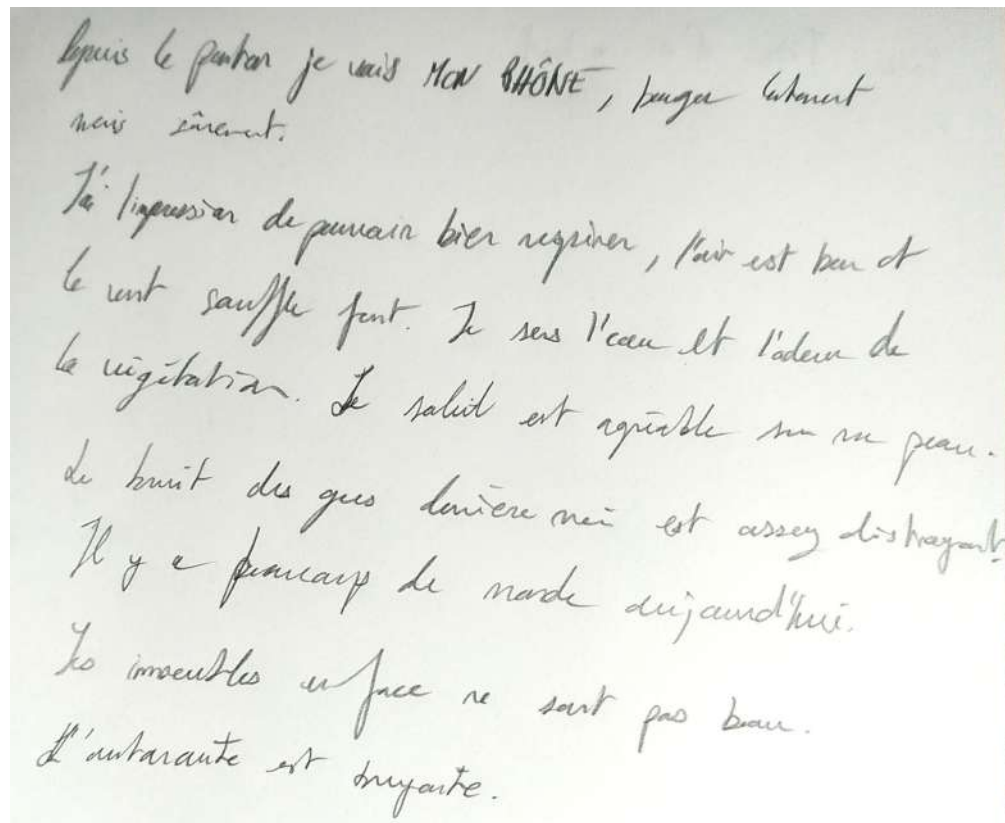 Depuis le ponton je vois MON RHÔNE, bouger lentement
mais sûrement.
J'ai l'impression de pouvoir bien respirer, l'air est bon et
le vent souffle fort. Je sens l'eau et l'odeur de
la végétation. Le soleil est agréable sur ma peau.
Le bruit des gens derrière moi est assez distrayant.
Il y a beaucoup de monde aujourd'hui.
Les immeubles en face ne sont pas beau.
L'autoroute est bruyante.